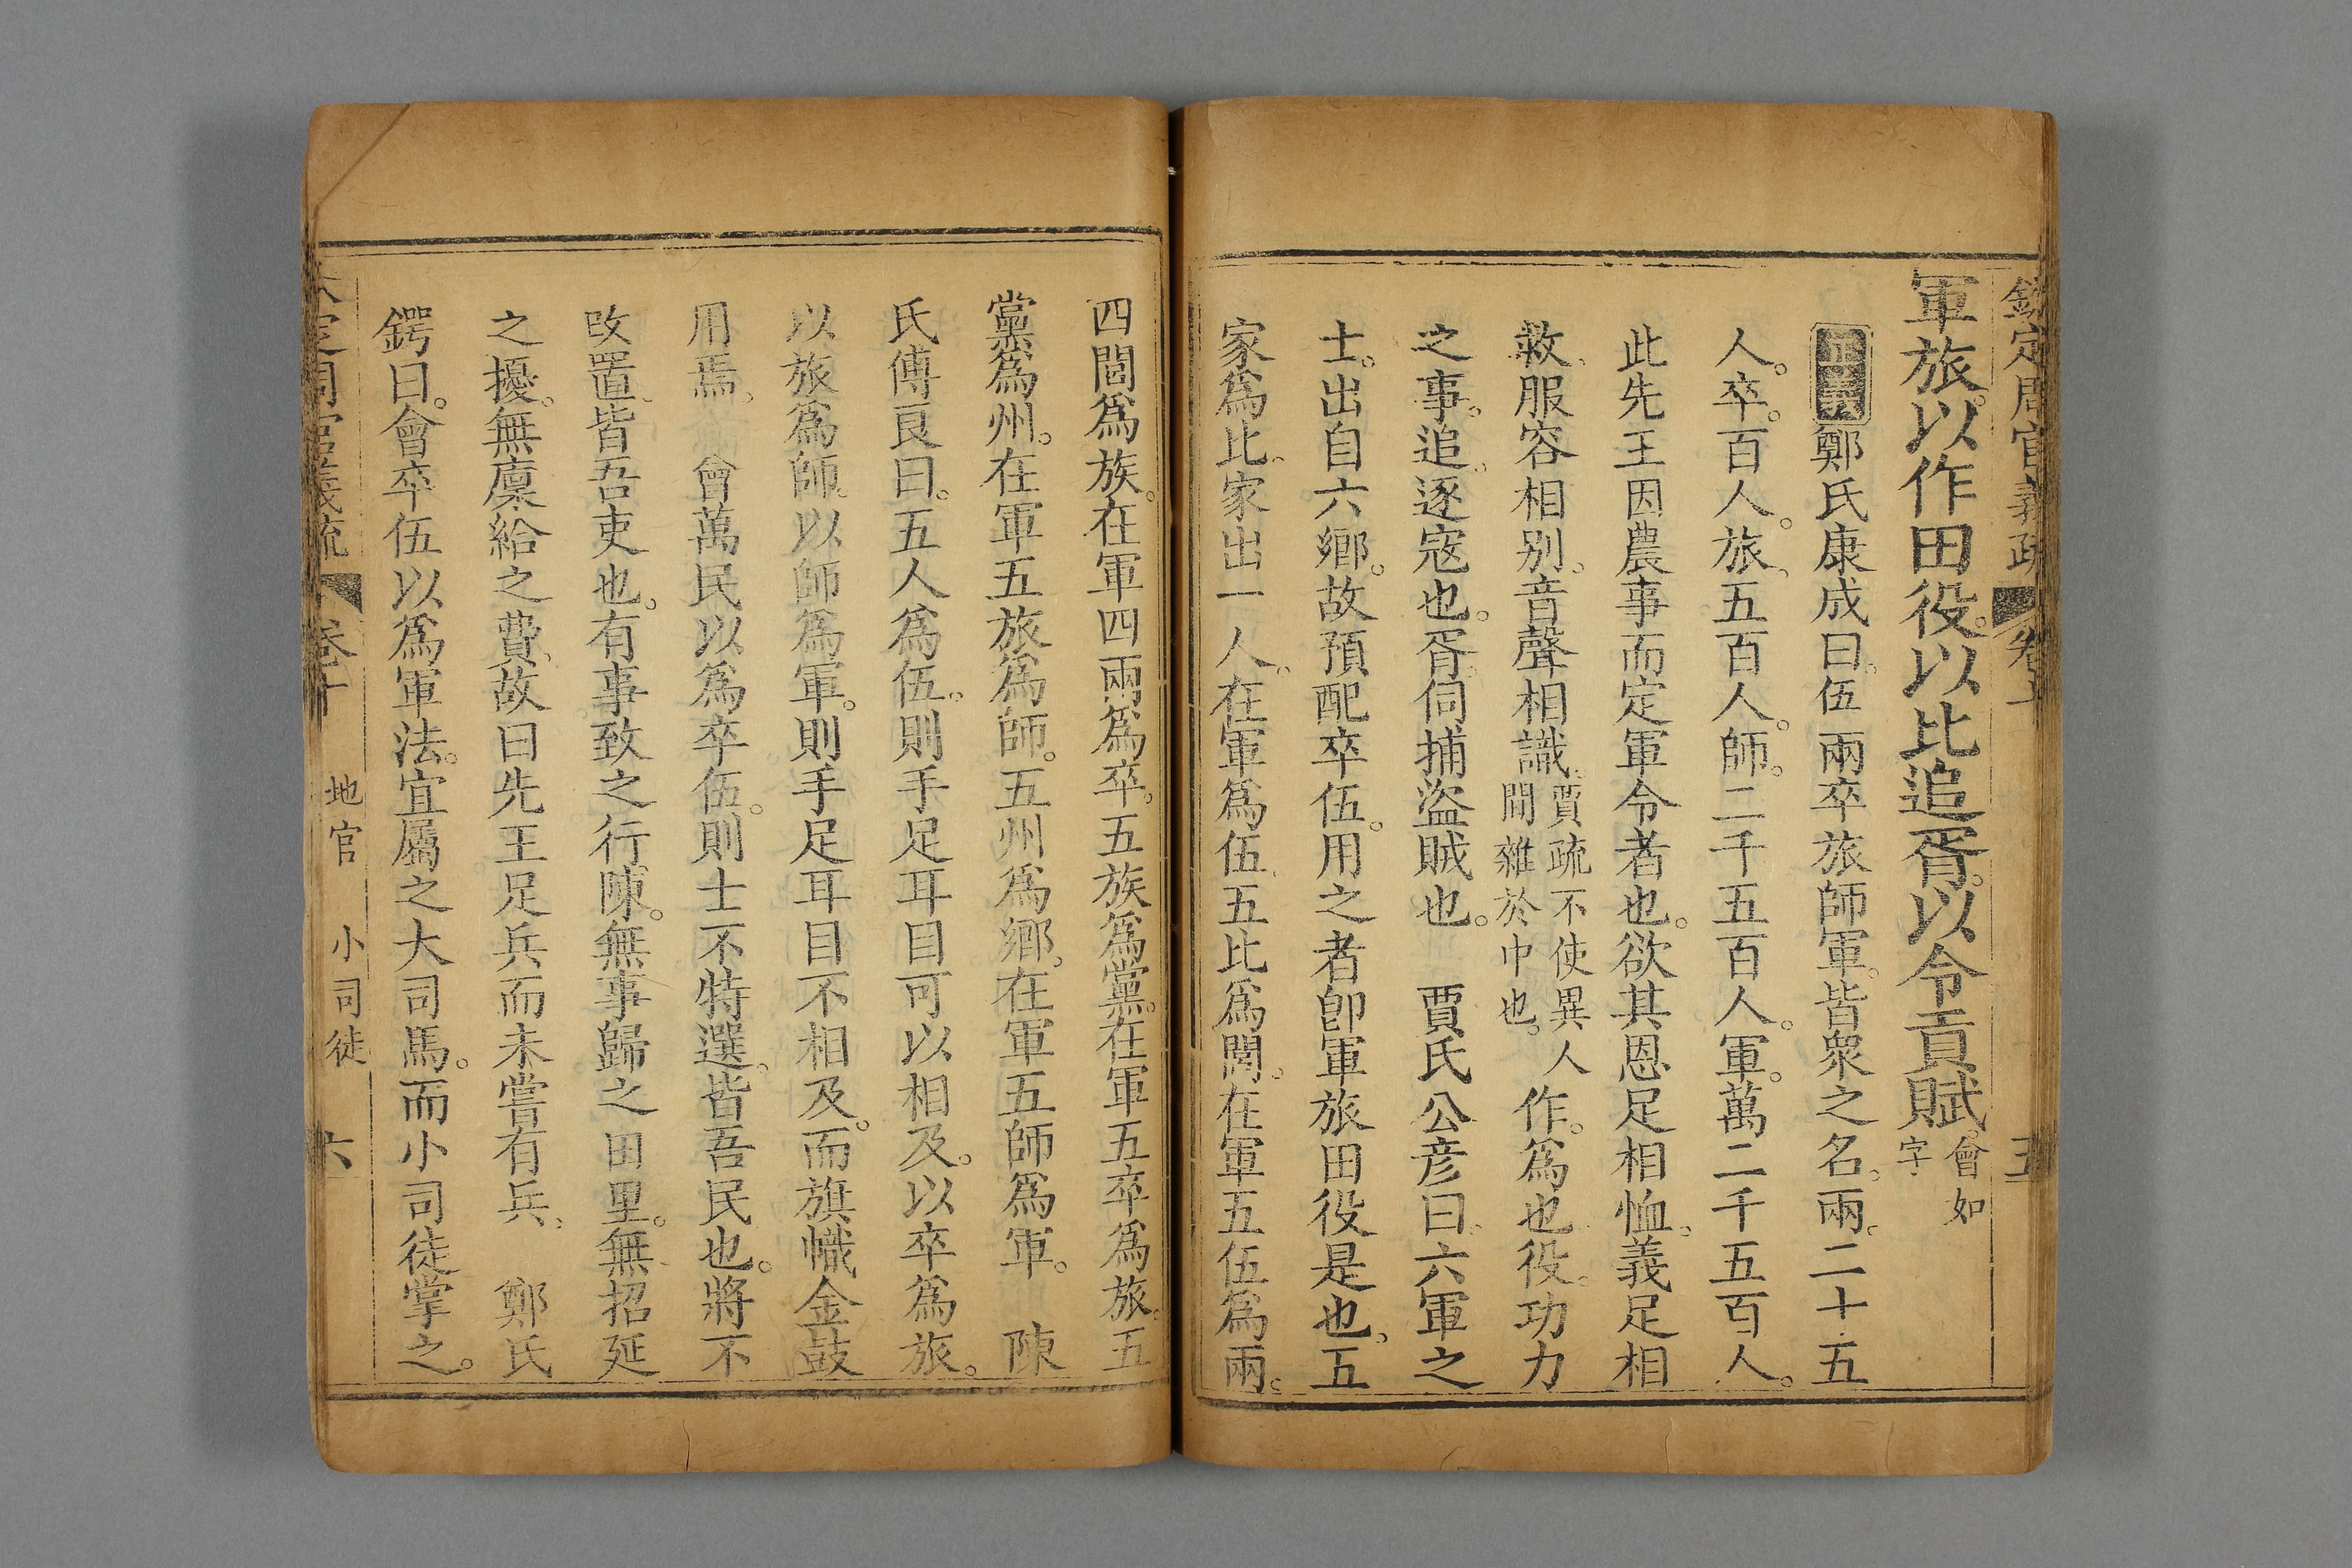 欽定周官義疏 卷十 五
軍旅。以作田役。以比追胥。以令貢賦。會如字。
正義鄭氏康成曰。伍兩卒旅師軍。皆衆之名。兩。二十五
人。卒。百人。旅、五百人。師。二千五百人。軍。萬二千五百人。
此先王因農事而定軍令者也。欲其恩足相恤。義足相
救、服容相別。音聲相識。賈疏不使異人間雜於中也。作。爲也。役。功力
之事。追。逐寇也。胥。伺捕盜賊也。 賈氏公彦曰。六軍之
士。出自六鄉。故預配卒伍。用之者卽軍旅田役是也。五
家爲比。家出一人。在軍爲伍、五比爲閭。在軍五伍爲兩。
四閭爲族。在軍四兩爲卒。五族爲黨。在軍五卒爲旅。五
黨爲州。在軍五旅爲師。五州爲鄉。在軍五師爲軍。 陳
氏傅良曰。五人爲伍。則手足耳目可以相及。以卒爲旅。
以旅爲師。以師爲軍。則手足耳目不相及。而旗幟金鼓
用焉、 會萬民以爲卒伍。則士不特選。皆吾民也。將不
改置、皆吾吏也。有事致之行陳。無事歸之田里。無招延
之擾。無廩給之費。故曰先王足兵而未嘗有兵、 鄭氏
鍔曰。會卒伍以爲軍法。宜屬之大司馬。而小司徒掌之。
欽定周官義疏 卷十 地官 小司徒 六